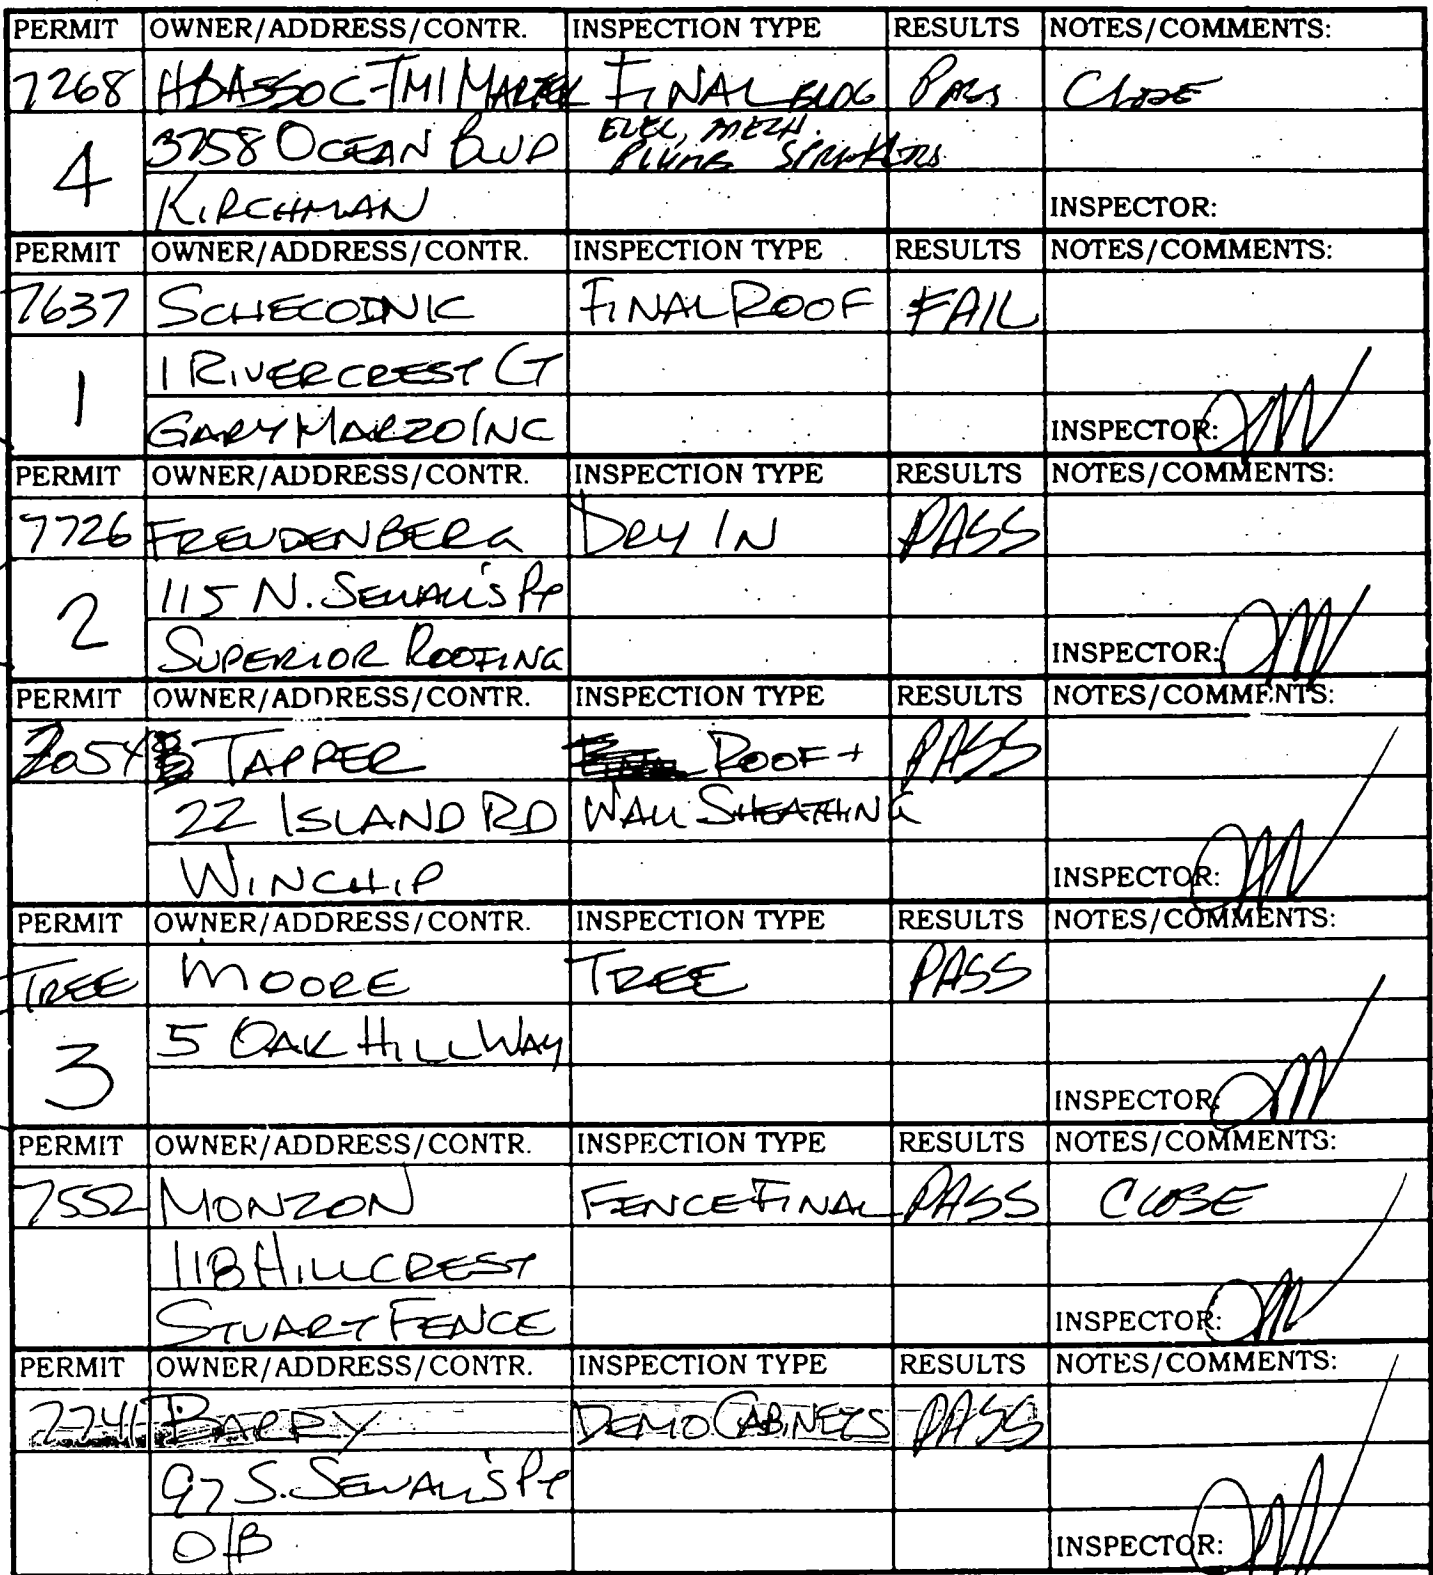 PERMIT OWNER/ADDRESS/CONTR. INSPECTION TYPE RESULTS NOTES/COMMENTS:
7268 HBASSOC-TMI FINAL BLDG PASS CLOSE
4 3758 OCEAN BLVD ELEC, MECH.
PLUMB SPRINKLERS
KIRCHMAN INSPECTOR:
PERMIT OWNER/ADDRESS/CONTR. INSPECTION TYPE RESULTS NOTES/COMMENTS:
7637 FINAL ROOF FAIL
1 1 RIVERCREST CT
GARY MARZO INC INSPECTOR:
PERMIT OWNER/ADDRESS/CONTR. INSPECTION TYPE RESULTS NOTES/COMMENTS:
7726 FREUDENBERG DRY IN PASS
2 115 N. SEWALL'S PT
SUPERIOR ROOFING INSPECTOR:
PERMIT OWNER/ADDRESS/CONTR. INSPECTION TYPE RESULTS NOTES/COMMENTS:
7054 TAPPER ROOF + PASS
22 ISLAND RD WALL SHEATHING
WINCHIP INSPECTOR:
PERMIT OWNER/ADDRESS/CONTR. INSPECTION TYPE RESULTS NOTES/COMMENTS:
TREE MOORE TREE PASS
3 5 OAK HILL WAY
INSPECTOR:
PERMIT OWNER/ADDRESS/CONTR. INSPECTION TYPE RESULTS NOTES/COMMENTS:
7552 MONZON FENCE FINAL PASS CLOSE
118 HILLCREST
STUART FENCE INSPECTOR:
PERMIT OWNER/ADDRESS/CONTR. INSPECTION TYPE RESULTS NOTES/COMMENTS:
7741 BARRY DEMO CABINETS PASS
97 S. SEWALL'S PT
O/B INSPECTOR: